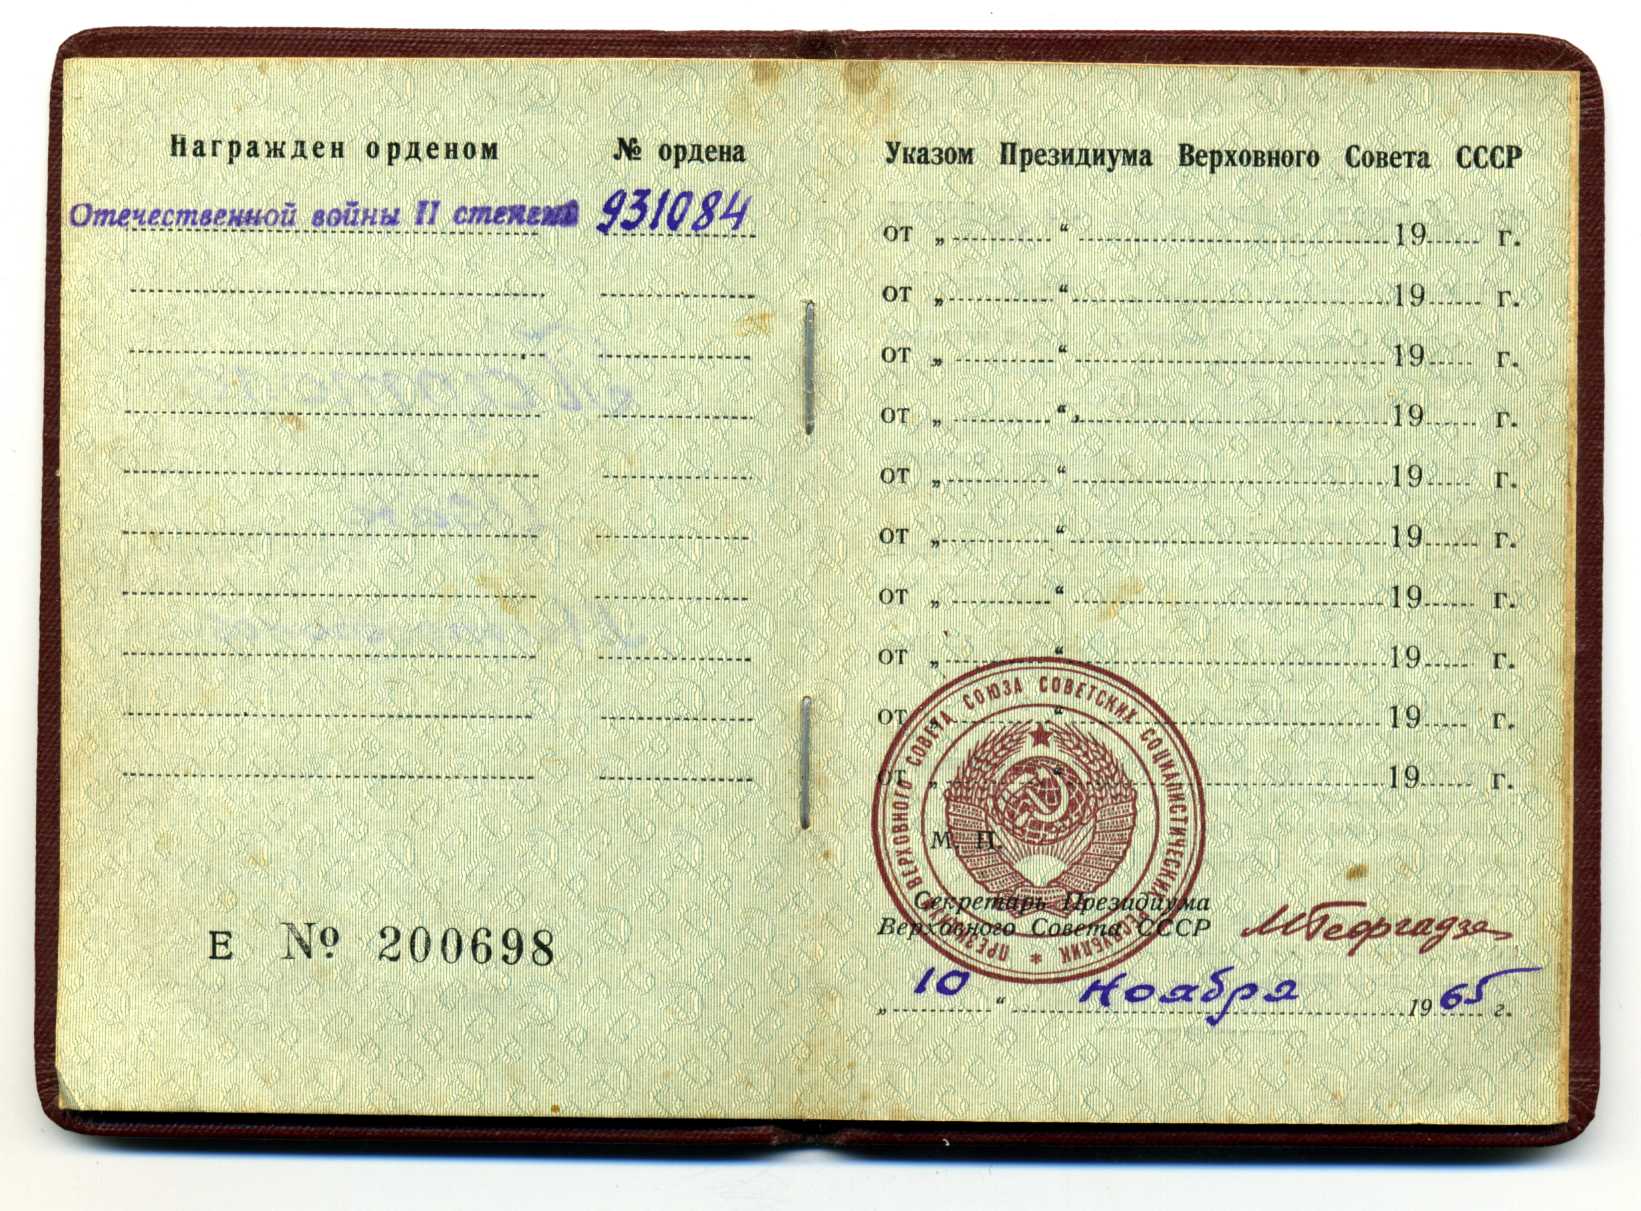 Награжден орденом № ордена
Отечественной войны II степени 931084
Е № 200698
Указом Президиума Верховного Совета СССР
от „ “ 19 г.
от „ “ 19 г.
от „ “ 19 г.
от „ “ 19 г.
от „ “ 19 г.
от „ “ 19 г.
от „ “ 19 г.
от „ “ 19 г.
от „ “ 19 г.
от „ “ 19 г.
ПРЕЗИДИУМ ВЕРХОВНОГО СОВЕТА СОЮЗА СОВЕТСКИХ СОЦИАЛИСТИЧЕСКИХ РЕСПУБЛИК
М. П.
Секретарь Президиума
Верховного Совета СССР МГеоргадзе
„ 10 “ ноября 1965 г.